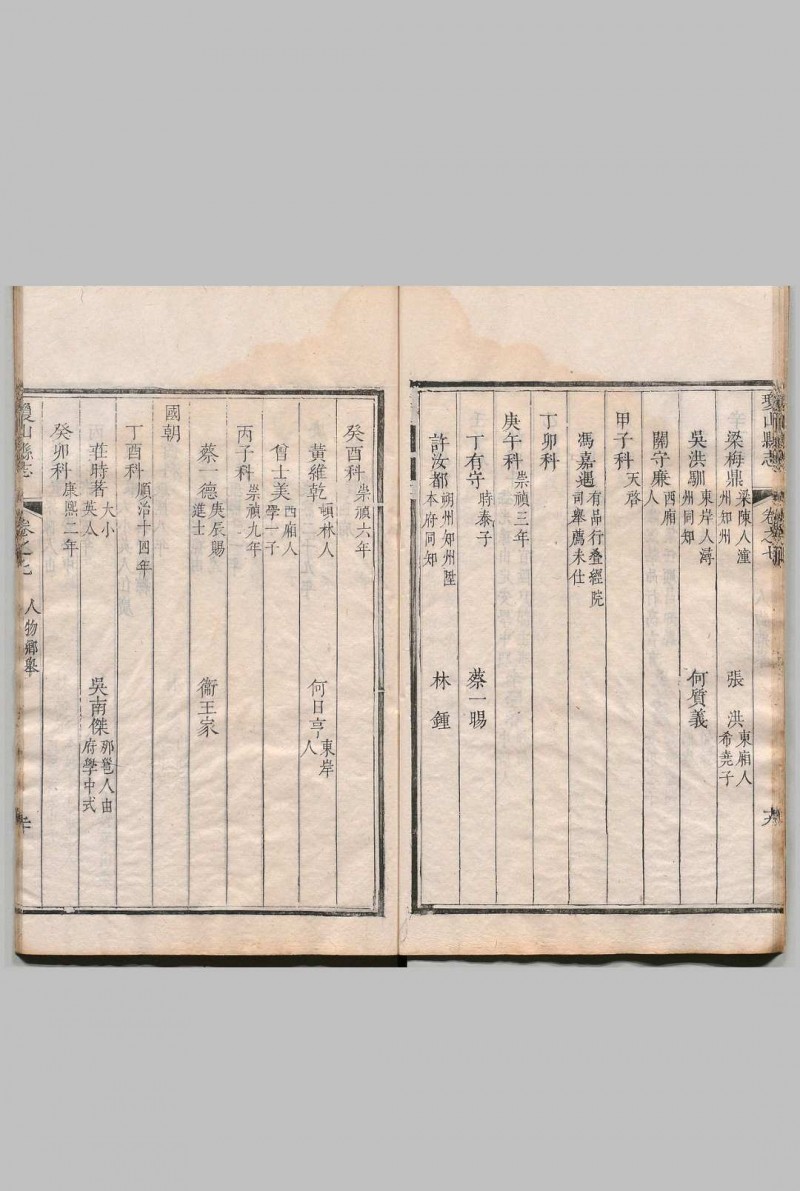 瓊山縣志
卷之七
梁梅鼎 梁陳人潼州知州 張洪 東廂人希堯子
吳洪馴 東岸人潯州同知 何質義
關守廉 西廂人
甲子科 天啓
馮嘉遇 有品行叠經院司舉薦未仕
丁卯科
庚午科 崇禎三年
丁有守 時泰子 蔡一暘
許汝都 朔州知州陞本府同知 林鍾
癸酉科 崇禎六年
黃維乾 頓林人 何日亨 東岸人
曾士美 西廂人學一子
丙子科 崇禎九年
蔡一德 庚辰賜進士 衞王家
國朝
丁酉科 順治十四年
莊時茖 大小英人 吳南傑 那邕人由府學中式
癸卯科 康熙二年
瓊山縣志
卷之七
人物鄉舉